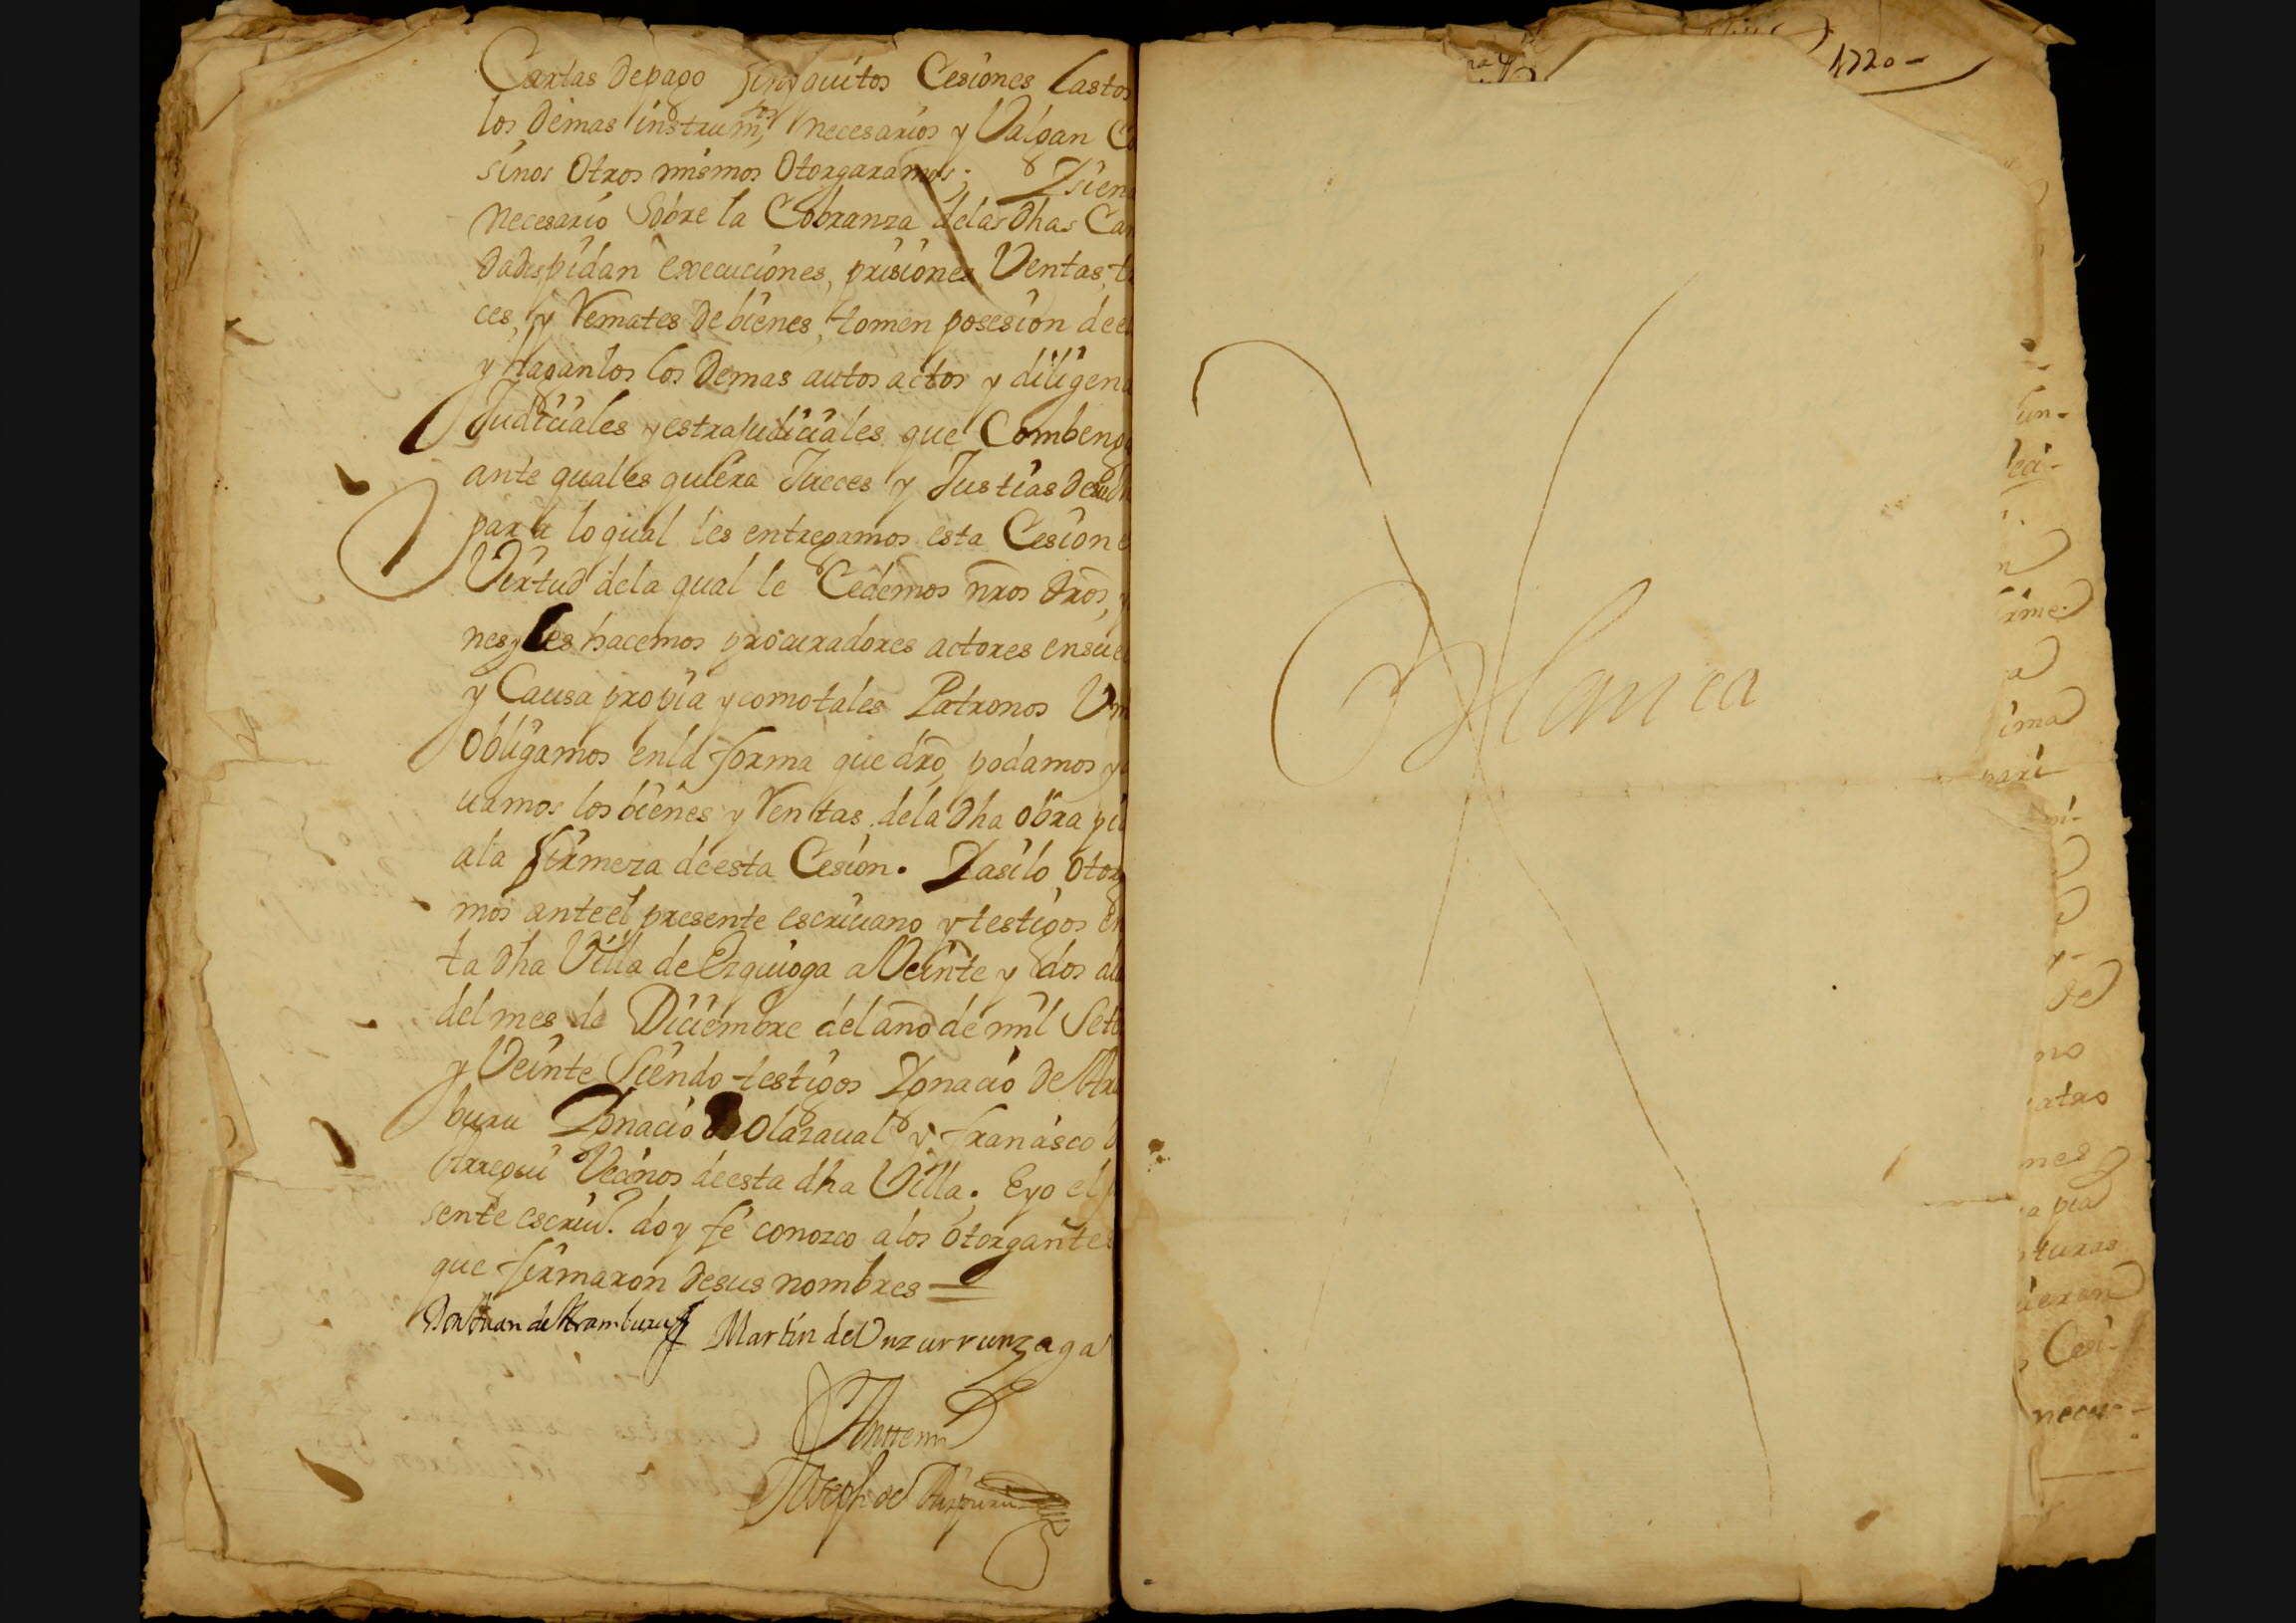 Cartas depago finiquitos Cesiones lastos
los demas instrum,tos necesarios y Valgan Co
sinos Otros mismos Otorgaramos; Ysien
necesario Sobre la Cobranza delas dhas Can
dades pidan execuciones, prisiones, Ventas, t
ces, y Remates de bienes, tomen posesion dee
y haganlos los demas autos actos y diligen
Judiciales y estrajudiciales que Combeng
ante quales quiera Jueces y Justias de
para lo qual les entregamos esta Cesion e
Virtud dela qual le Cedemos nros dros, y
nes y les hacemos procuradores actores ensue
y Causa propia y comotales Patronos
Obligamos enla forma que dro, podamos y
uamos los bienes y Rentas, dela dha obra pi
ala firmeza deesta Cesion. Yasilo, Otor
mos anteel presente escriuano y testigos en
ta dha Villa de Ezquioga a Veinte y dos di
del mes de Diciembre del año de mil Sete
y Veinte Siendo testigos Ygnacio de Ara
buru Ygnacio de Olazaual y francisco
Arregui Vecinos deesta dha Villa. Eyo el
sente escriuo. doy fe conozco alos otorgantes
que firmaron desus nombres =
Don Juan de Aramburu Martin de Unzurrunzaga
Antte mi
Joseph de
Blanca
1720 -
un-
leci-
n
rme
a
ima
peri
ni-
de
no
atro
nes
a pia
turas
uieren
Cesi-
neces-